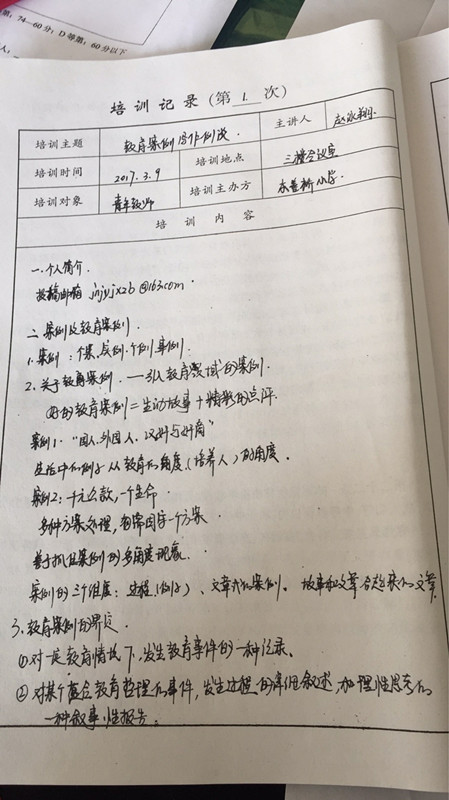 第: 74—60分; D等第: 60分以下
培训记录(第 1. 次)
培训主题 教育案例写作例谈. 主讲人 赵咏翔.
培训时间 2017.3.9 培训地点 三楼会议室
培训对象 青年教师 培训主办方 小学.
培训内容
一.个人简介.
投稿邮箱 jnjyjxzb@163.com.
二.案例及教育案例.
1.案例: 个案,成例.个例事例.
2.关于教育案例.—引入教育领域的案例.
好的教育案例=生动故事+精彩的点评.
案例1."国人.外国人.汉奸与奸商"
生活中的例子从教育的角度(培养人)的角度.
案例2:十元左款,一个生命.
多种方案处理,
善于抓住案例的多角度现象.
案例的三个维度:过程(例子)、文章式的案例.故事和文章合起来的文章.
3.教育案例的界定.
①对一定教育情境下,发生教育事件的一种记录.
②对某个蕴含教育哲理的事件,发生过程的详细叙述,加理性思考的
一种叙事性报告.